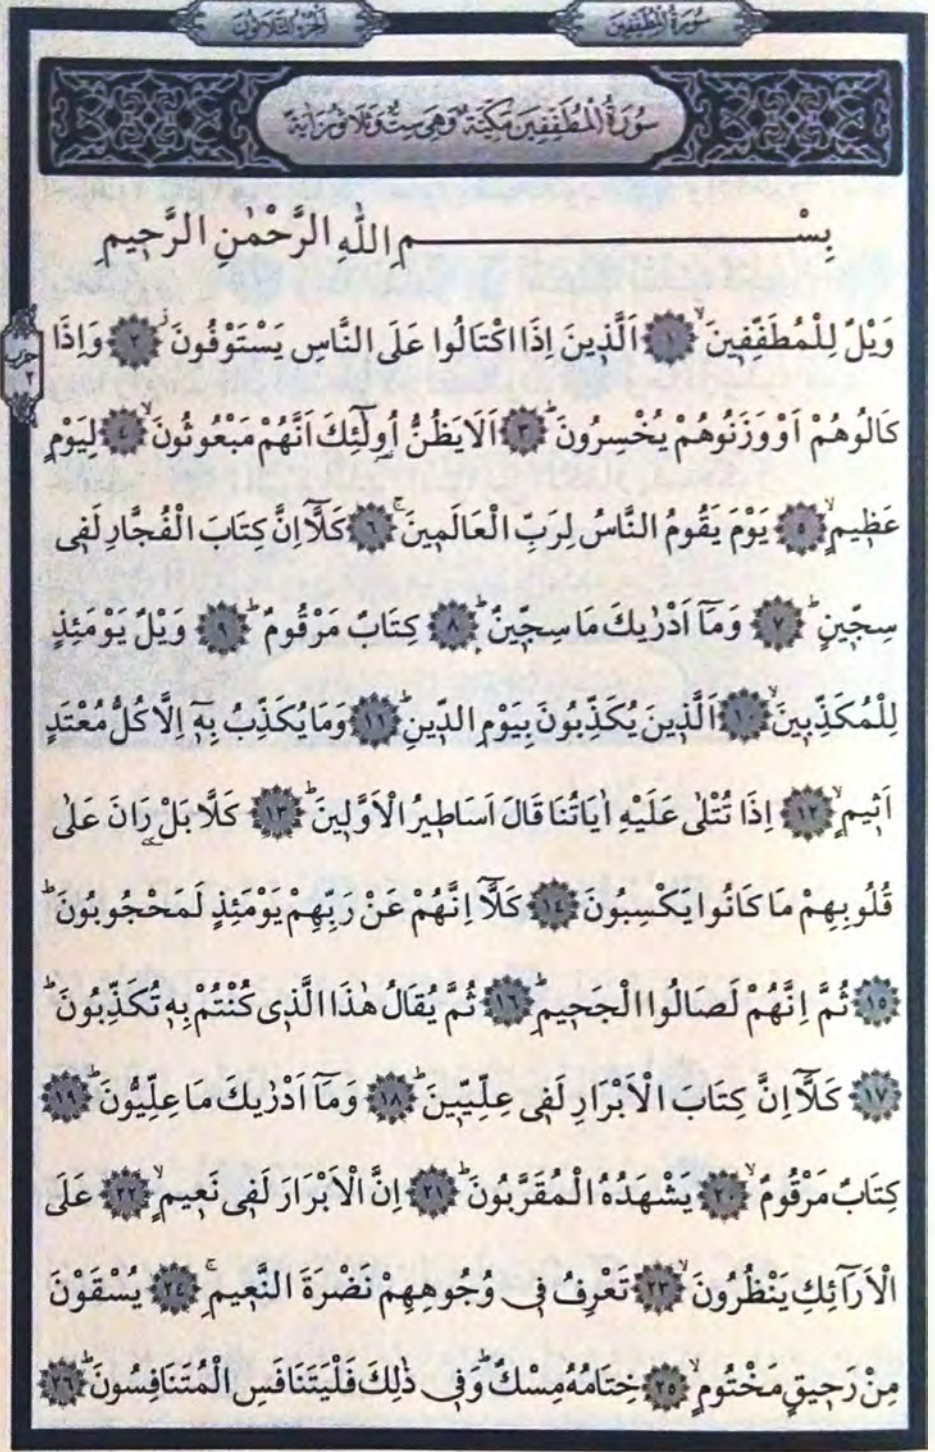 سُورَةُ الْمُطَفِّفِينَ
اَلْجُزْءُ الثَّلَاثُونَ
سُورَةُ الْمُطَفِّفِينَ مَكِّيَّةٌ وَهِيَ سِتٌّ وَثَلَاثُونَ اٰيَةً
بِسْمِ اللّٰهِ الرَّحْمٰنِ الرَّحِيمِ
وَيْلٌ لِلْمُطَفِّفِينَۙ ﴿١﴾ اَلَّذِينَ اِذَا اكْتَالُوا عَلَى النَّاسِ يَسْتَوْفُونَۘ ﴿٢﴾ وَاِذَا
حزب ٢
كَالُوهُمْ اَوْ وَزَنُوهُمْ يُخْسِرُونَۜ ﴿٣﴾ اَلَا يَظُنُّ اُولٰٓئِكَ اَنَّهُمْ مَبْعُوثُونَۙ ﴿٤﴾ لِيَوْمٍ
عَظِيمٍۙ ﴿٥﴾ يَوْمَ يَقُومُ النَّاسُ لِرَبِّ الْعَالَمِينَۚ ﴿٦﴾ كَلَّٓا اِنَّ كِتَابَ الْفُجَّارِ لَفِى
سِجِّينٍۜ ﴿٧﴾ وَمَٓا اَدْرٰيكَ مَا سِجِّينٌۜ ﴿٨﴾ كِتَابٌ مَرْقُومٌۜ ﴿٩﴾ وَيْلٌ يَوْمَئِذٍ
لِلْمُكَذِّبِينَۙ ﴿١٠﴾ اَلَّذِينَ يُكَذِّبُونَ بِيَوْمِ الدِّينِۜ ﴿١١﴾ وَمَا يُكَذِّبُ بِهٖٓ اِلَّا كُلُّ مُعْتَدٍ
اَثِيمٍۙ ﴿١٢﴾ اِذَا تُتْلٰى عَلَيْهِ اٰيَاتُنَا قَالَ اَسَاطِيرُ الْاَوَّلِينَۜ ﴿١٣﴾ كَلَّا بَلْ رَانَ عَلٰى
قُلُوبِهِمْ مَا كَانُوا يَكْسِبُونَ ﴿١٤﴾ كَلَّٓا اِنَّهُمْ عَنْ رَبِّهِمْ يَوْمَئِذٍ لَمَحْجُوبُونَۜ
﴿١٥﴾ ثُمَّ اِنَّهُمْ لَصَالُوا الْجَحِيمِۜ ﴿١٦﴾ ثُمَّ يُقَالُ هٰذَا الَّذِى كُنْتُمْ بِهٖ تُكَذِّبُونَۜ
﴿١٧﴾ كَلَّٓا اِنَّ كِتَابَ الْاَبْرَارِ لَفِى عِلِّيِّينَۜ ﴿١٨﴾ وَمَٓا اَدْرٰيكَ مَا عِلِّيُّونَۜ ﴿١٩﴾
كِتَابٌ مَرْقُومٌۙ ﴿٢٠﴾ يَشْهَدُهُ الْمُقَرَّبُونَۜ ﴿٢١﴾ اِنَّ الْاَبْرَارَ لَفِى نَعِيمٍۙ ﴿٢٢﴾ عَلَى
الْاَرَٓائِكِ يَنْظُرُونَۙ ﴿٢٣﴾ تَعْرِفُ فِى وُجُوهِهِمْ نَضْرَةَ النَّعِيمِۚ ﴿٢٤﴾ يُسْقَوْنَ
مِنْ رَحِيقٍ مَخْتُومٍۙ ﴿٢٥﴾ خِتَامُهُ مِسْكٌۜ وَفِى ذٰلِكَ فَلْيَتَنَافَسِ الْمُتَنَافِسُونَۜ ﴿٢٦﴾